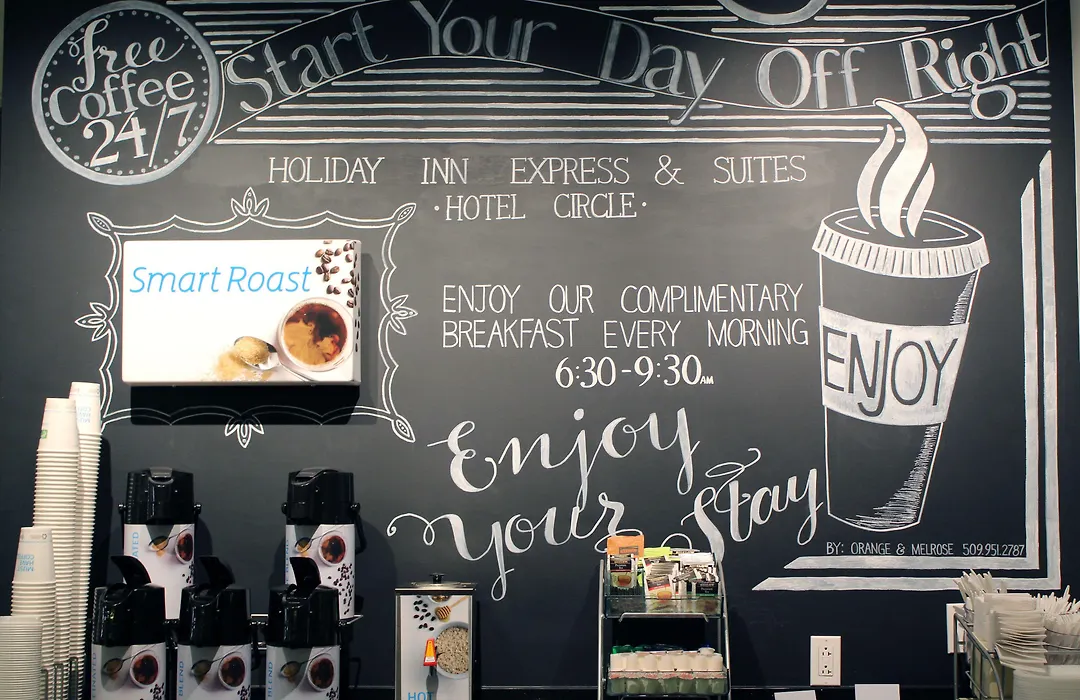 Free
Coffee
24/7
Start Your Day Off Right
HOLIDAY INN EXPRESS & SUITES
·HOTEL CIRCLE·
Smart Roast
ENJOY OUR COMPLIMENTARY
BREAKFAST EVERY MORNING
6:30-9:30AM
ENJOY
Enjoy
Your Stay
BY: ORANGE & MELROSE 509.951.2787
BLEND
HOT